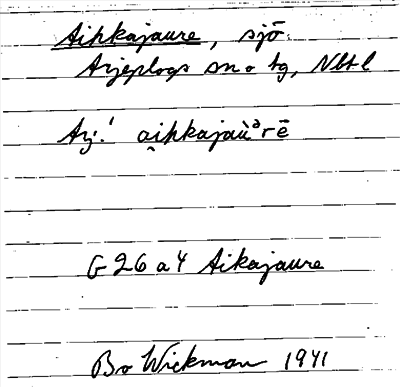 Aihkajaure, sjö.
Arjeplogs sn o tg, Nbt l
Arj.! a̭ihkajau̇ᵊrē
G 26 a 4 Aikajaure
Bo Wickman 1941